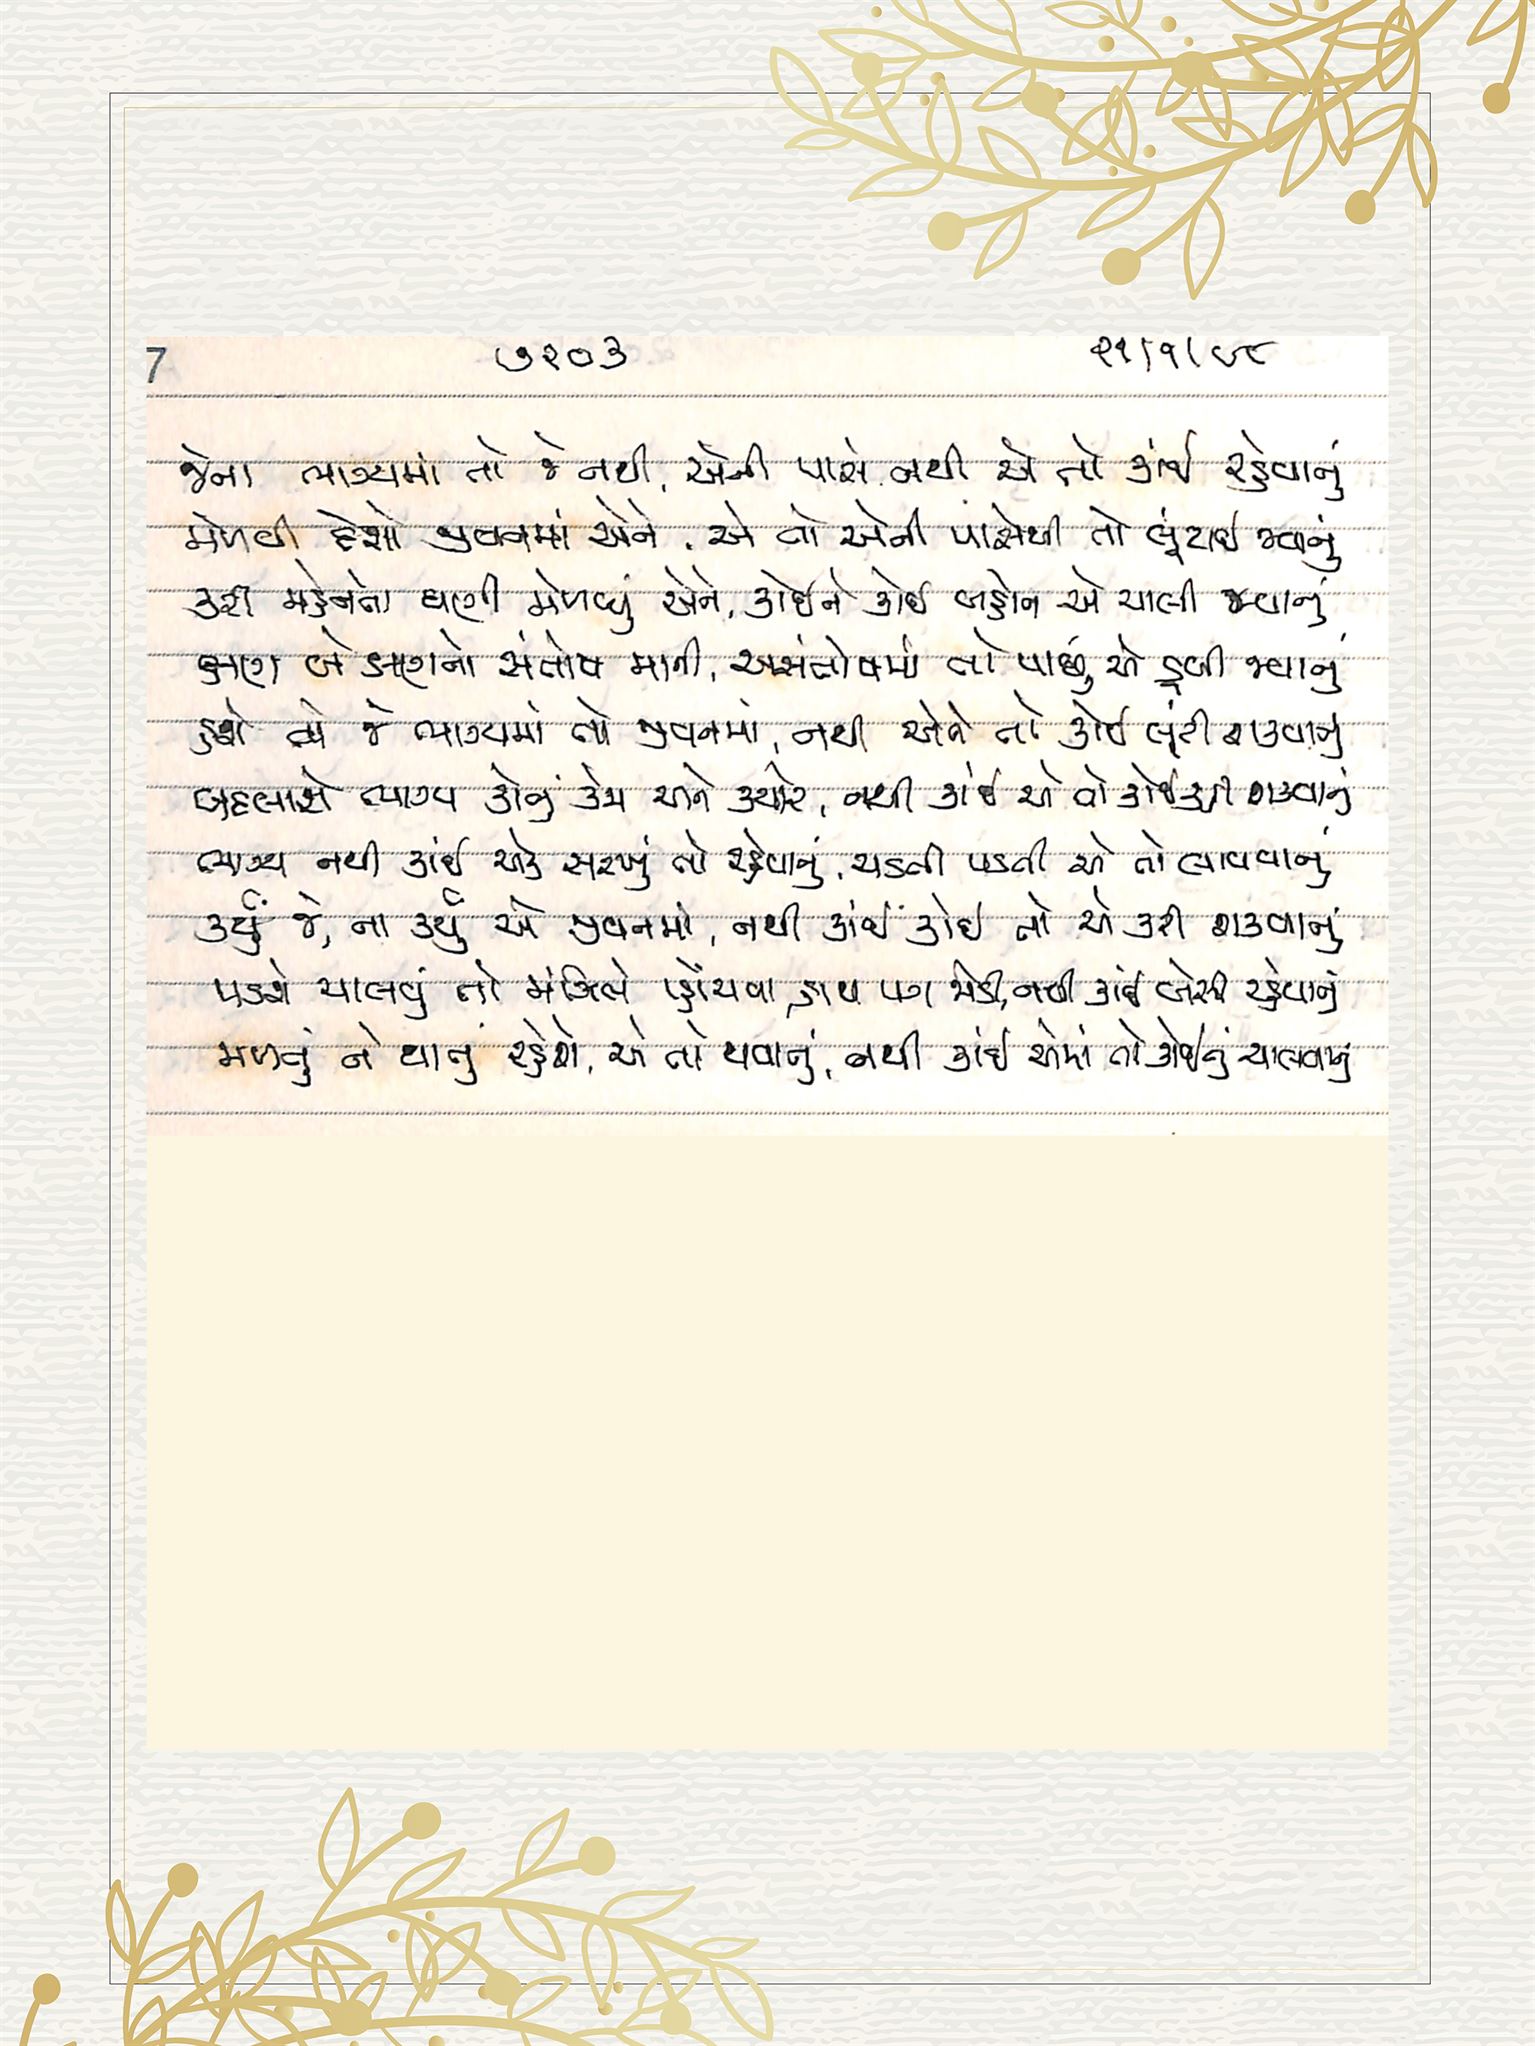 7 ૭૨૦૩ ૨૧/૧/૯૮
જેના ભાગ્યમાં તો જે નથી, એની પાસે નથી એ તો કાંઈ રહેવાનું
મેળવી લેશો જીવનમાં એને, એ તો એની પાંસેથી તો લૂંટાઈ જવાનું
કરી મહેનત ઘણી મેળવ્યું એને, કોઈને કોઈ બહાને એ ચાલી જવાનું
ક્ષણ બે ક્ષણનો સંતોષ માની, અસંતોષમાં તો પાછું એ ડૂબી જવાનું
હશે જે ભાગ્યમાં તો જીવનમાં, નથી એને તો કોઈ લૂંટી શકવાનું
બદલાશે ભાગ્ય કોનું કેમ અને ક્યારે, નથી કાંઈ એ તો કોઈ કહી શકવાનું
ભાગ્ય નથી કાંઈ એક સરખું તો રહેવાનું, ચડતી પડતી એ તો લાવવાનું
કર્યું જે, ના કર્યું એ જીવનમાં, નથી કાંઈ કોઈ તો એ કરી શકવાનું
પડશે ચાલવું તો મંઝિલે પ્હોંચવા, હાથ પગ જોડી, નથી કાંઈ બેસી રહેવાનું
મળવું ને થાવું રહેશે, એ તો થવાનું, નથી કાંઈ એમાં તો કોઈનું ચાલવાનું